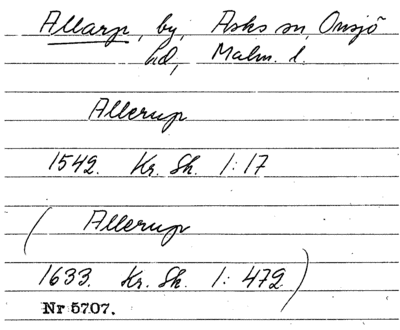 Allarp, by, Asks sn, Onsjö
hd, Malm. l.
Allerup
1542. Kr. Sk. 1:17
(Allerup
1633. Kr. Sk. 1: 472)
Nr 5707.